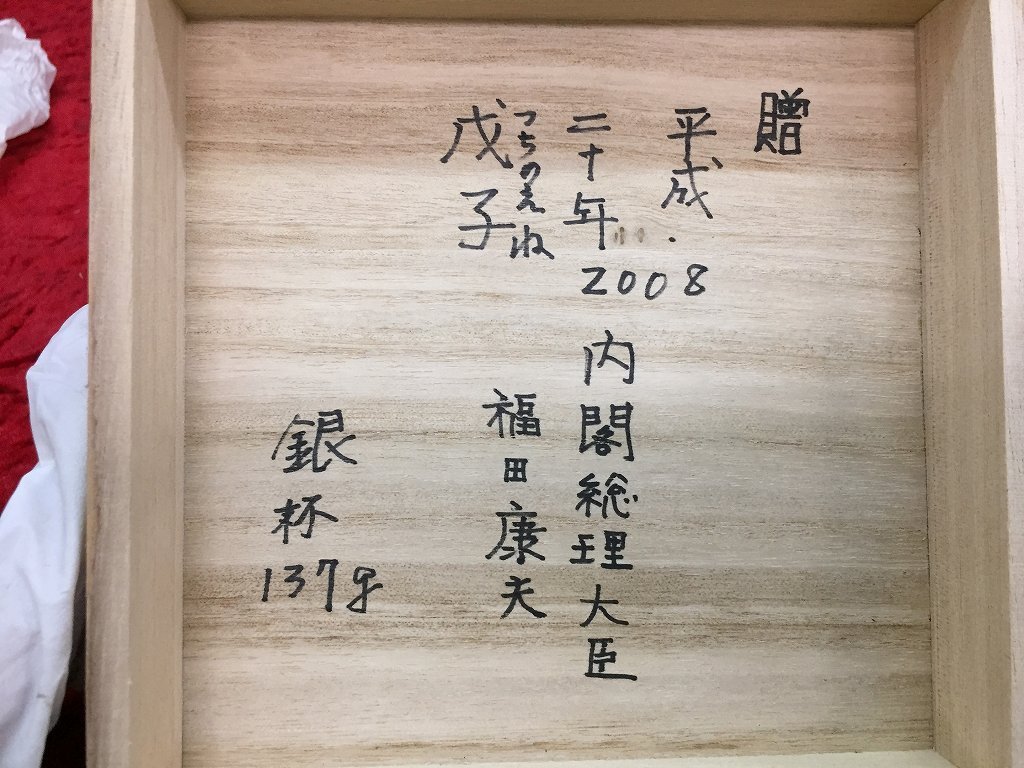 贈
平成
二十年
2008
つちのえね
戊子
内閣総理大臣
福田康夫
銀杯
137g